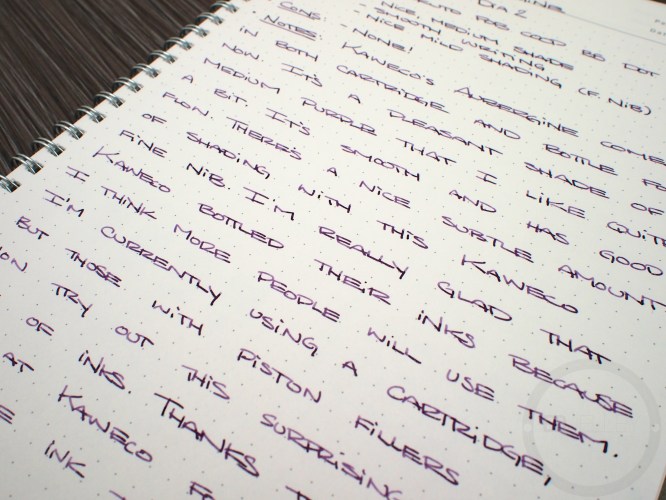 FOR GOOD DOT
- NICE, MEDIUM SHADE
- SMOOTH WRITING
- NICE MILD SHADING (F. NIB)
CONS: - NONE!
NOTES: KAWECO'S AUBERGINE COME
IN BOTH CARTRIDGE AND BOTTLE FO
NOW. IT'S A PLEASANT SHADE OF
MEDIUM PURPLE THAT I LIKE QUIT
A BIT. IT'S SMOOTH AND HAS GOOD
FLOW. THERE'S A NICE SUBTLE AMOUNT
OF SHADING WITH THIS KAWECO
FINE NIB. I'M REALLY GLAD THAT
KAWECO BOTTLED THEIR INKS BECAUSE
I THINK MORE PEOPLE WILL USE THEM.
I'M CURRENTLY USING A CARTRIDGE,
BUT THOSE WITH PISTON FILLERS
TRY OUT THIS SURPRISING
OF INKS. THANKS
AT KAWECO FO
INK